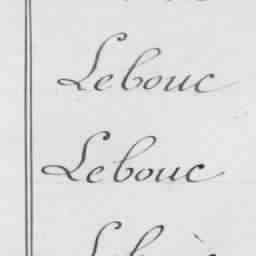 Lebouc
Lebouc